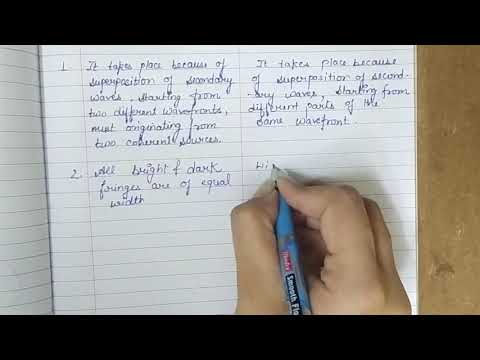 1. It takes place because of
superposition of secondary
waves, starting from
two different wavefronts,
must originating from
two coherent sources.
It takes place because
of superposition of second-
ary waves, starting from
different parts of the
same wavefront.
2. All bright & dark
fringes are of equal
width
Wi
Smooth Flo